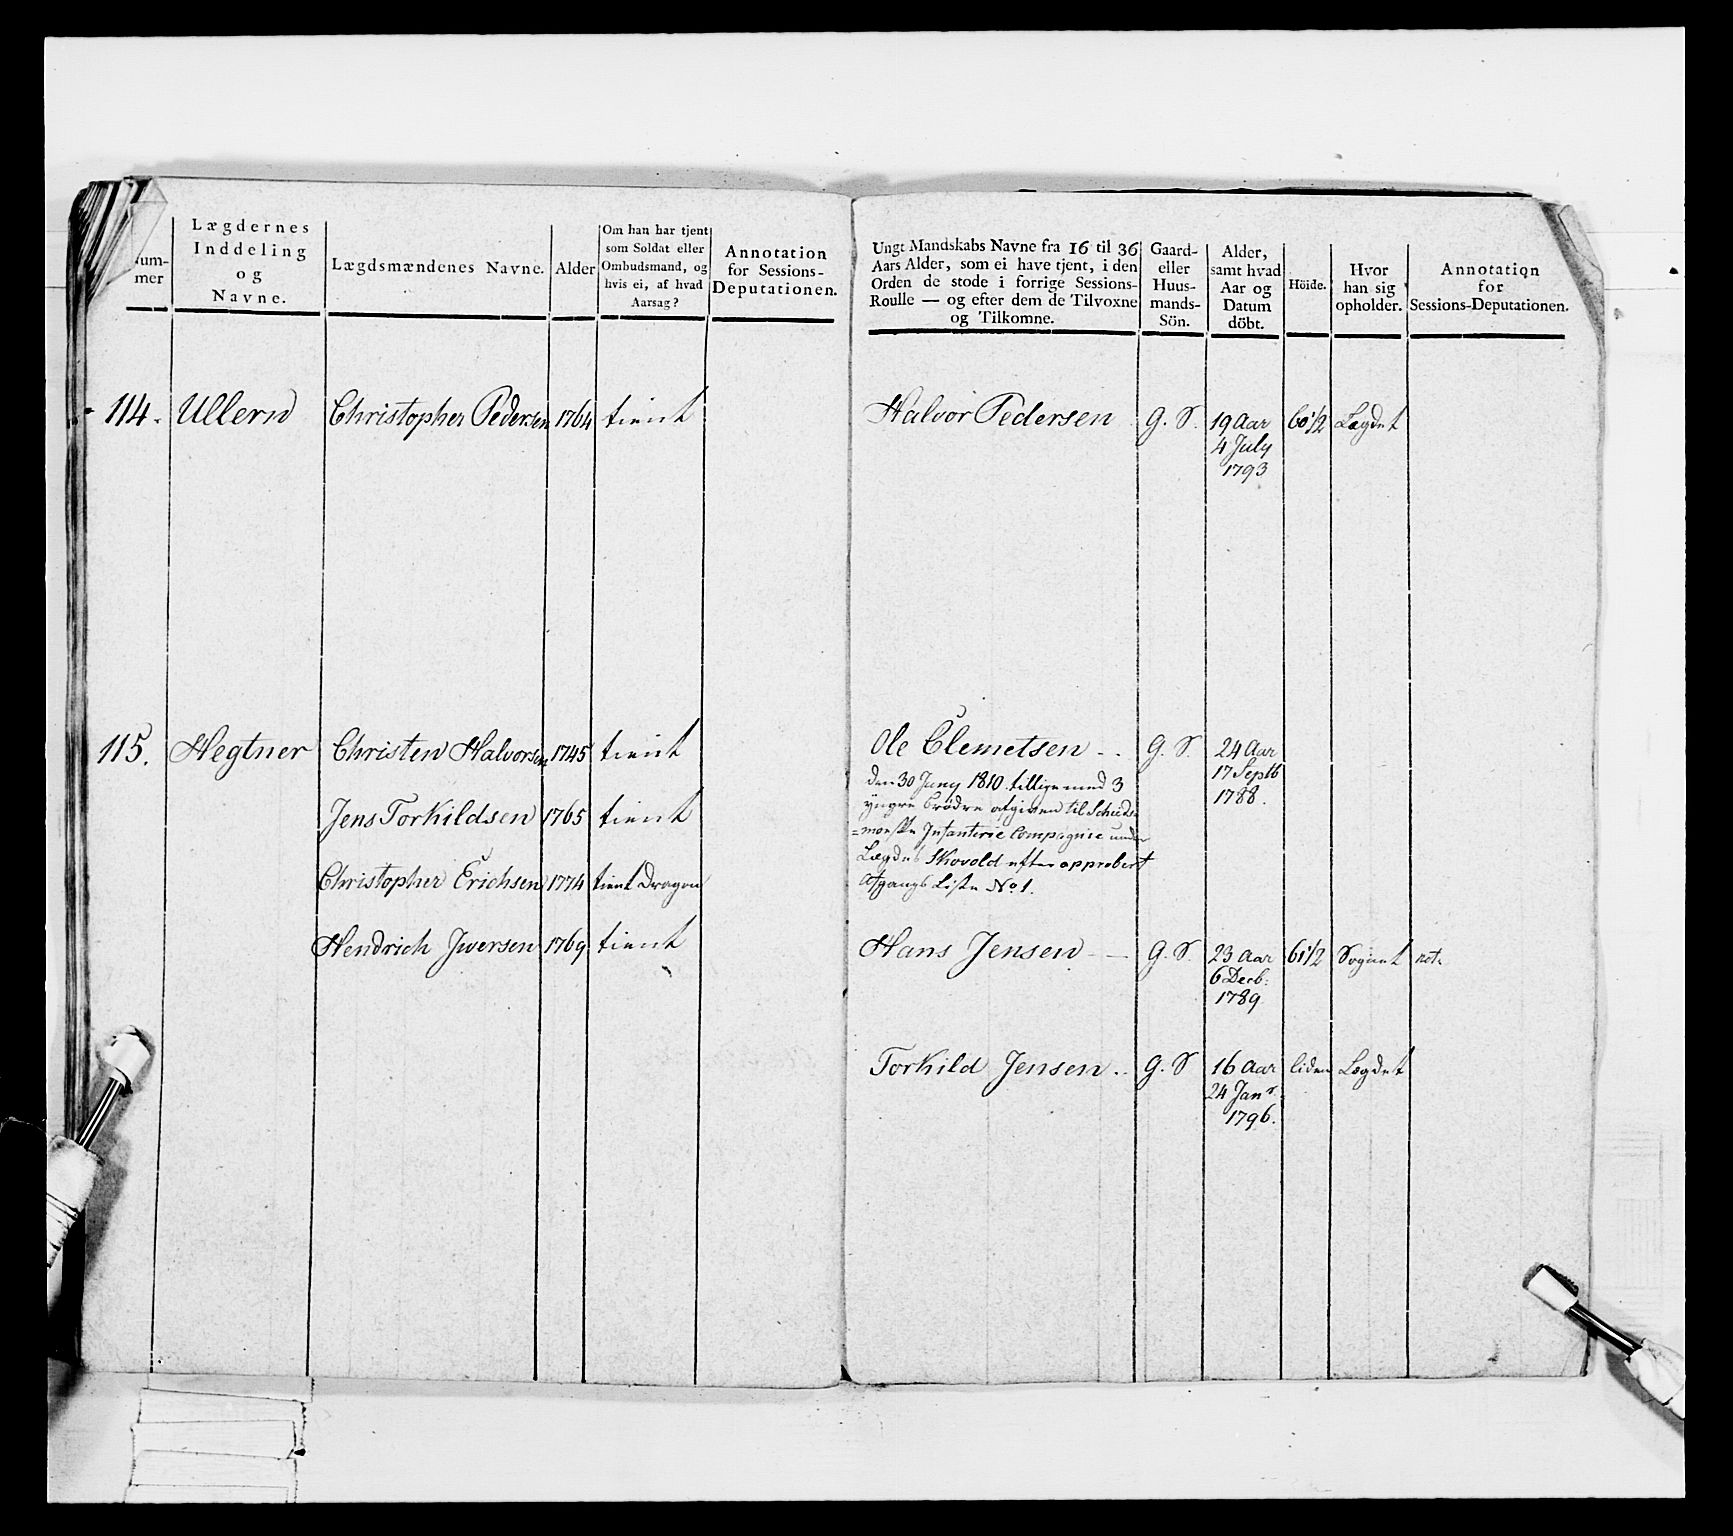 Num-
mer
Lægdernes
Inddeling
og
Navne.
Lægdsmændenes Navne.
Alder
Om han har tjent
som Soldat eller
Ombudsmand, og
hvis ei, af hvad
Aarsag?
Annotation
for Sessions-
Deputationen.
Ungt Mandskabs Navne fra 16 til 36
Aars Alder, som ei have tjent, i den
Orden de stode i forrige Sessions-
Roulle — og efter dem de Tilvoxne
og Tilkomne.
Gaard-
eller
Huus-
mands-
Sön.
Alder,
samt hvad
Aar og
Datum
döbt.
Höide.
Hvor
han sig
opholder.
Annotation
for
Sessions-Deputationen.
114. Ullern Christopher Pedersen 1764 tient Halvor Pedersen G. S. 19 Aar 60 1/2 Lægdet
4 July
1793
115. Hegtner Christen Halvorsen 1745 tient Ole Clemetsen - . G. S. 24 Aar
17 Septb
1788.
den 30 Juny 1810 tillige med 3
yngre brødre afgiven til Schieds-
=moeske Infanterie Compagnie under
Lægdet Skovold efter approbert
Afgangs Liste No 1.
Jens Torkildsen 1765 tient
Christopher Erichsen 1774 tient Dragon
Hendrich Iwersen 1769 tient Hans Jensen - — G. S. 23 Aar 61 1/2 Sognet not.
6 Decb:
1789
Torkild Jensen .. G. S 16 Aar liden Lægdet
24 Janr.
1796.